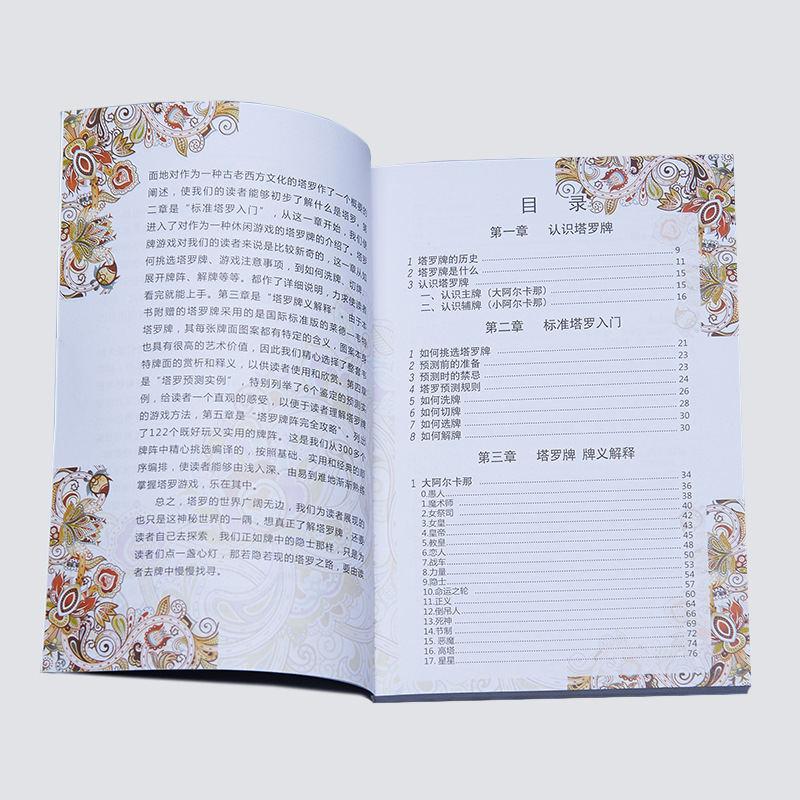 面地对作为一种古老西方文化的塔罗作了一个概要的
阐述，使我们的读者能够初步了解什么是塔罗。第
二章是“标准塔罗入门”，从这一章开始，我们便
进入了对作为一种休闲游戏的塔罗牌的介绍了。塔罗
牌游戏对我们的读者来说是比较新奇的，这一章从如
何挑选塔罗牌、游戏注意事项，到如何洗牌、切牌、
展开牌阵、解牌等等。都作了详细说明，力求使读者
看完就能上手。第三章是“塔罗牌义解释”。由于本
书附赠的塔罗牌采用的是国际标准版的莱德—韦特
塔罗牌，其每张牌面图案都有特定的含义，图案本身
也具有很高的艺术价值，因此我们精心选择了整套韦
特牌面的赏析和释义，以供读者使用和欣赏。第四章
是“塔罗预测实例”，特别列举了6个鉴定的预测实
例，给读者一个直观的感受，以便于读者理解塔罗牌
的游戏方法，第五章是“塔罗牌阵完全攻略”。列出
了122个既好玩又实用的牌阵。这是我们从300多个
牌阵中精心挑选编译的，按照基础、实用和经典的顺
序编排，使读者能够由浅入深、由易到难地渐渐熟练
掌握塔罗游戏，乐在其中。
总之，塔罗的世界广阔无边，我们为读者展现的
也只是这神秘世界的一隅，想真正了解塔罗牌，还要
读者自己去探索，我们正如牌中的隐士那样，只是为
读者们点一盏心灯，那若隐若现的塔罗之路，要由读
者去牌中慢慢找寻。
目 录
第一章 认识塔罗牌
1 塔罗牌的历史 9
2 塔罗牌是什么 11
3 认识塔罗牌 15
一、认识主牌（大阿尔卡那） 15
二、认识辅牌（小阿尔卡那） 16
第二章 标准塔罗入门
1 如何挑选塔罗牌 21
2 预测前的准备 23
3 预测时的禁忌 23
4 塔罗预测规则 24
5 如何洗牌 26
6 如何切牌 28
7 如何选牌 30
8 如何解牌 30
第三章 塔罗牌 牌义解释
1 大阿尔卡那 34
0.愚人 36
1.魔术师 38
2.女祭司 40
3.女皇 42
4.皇帝 43
5.教皇 45
6.恋人 48
7.战车 50
8.力量 53
9.隐士 54
10.命运之轮 57
11.正义 60
12.倒吊人 64
13.死神 66
14.节制 69
15.恶魔 72
16.高塔 74
17.星星 76